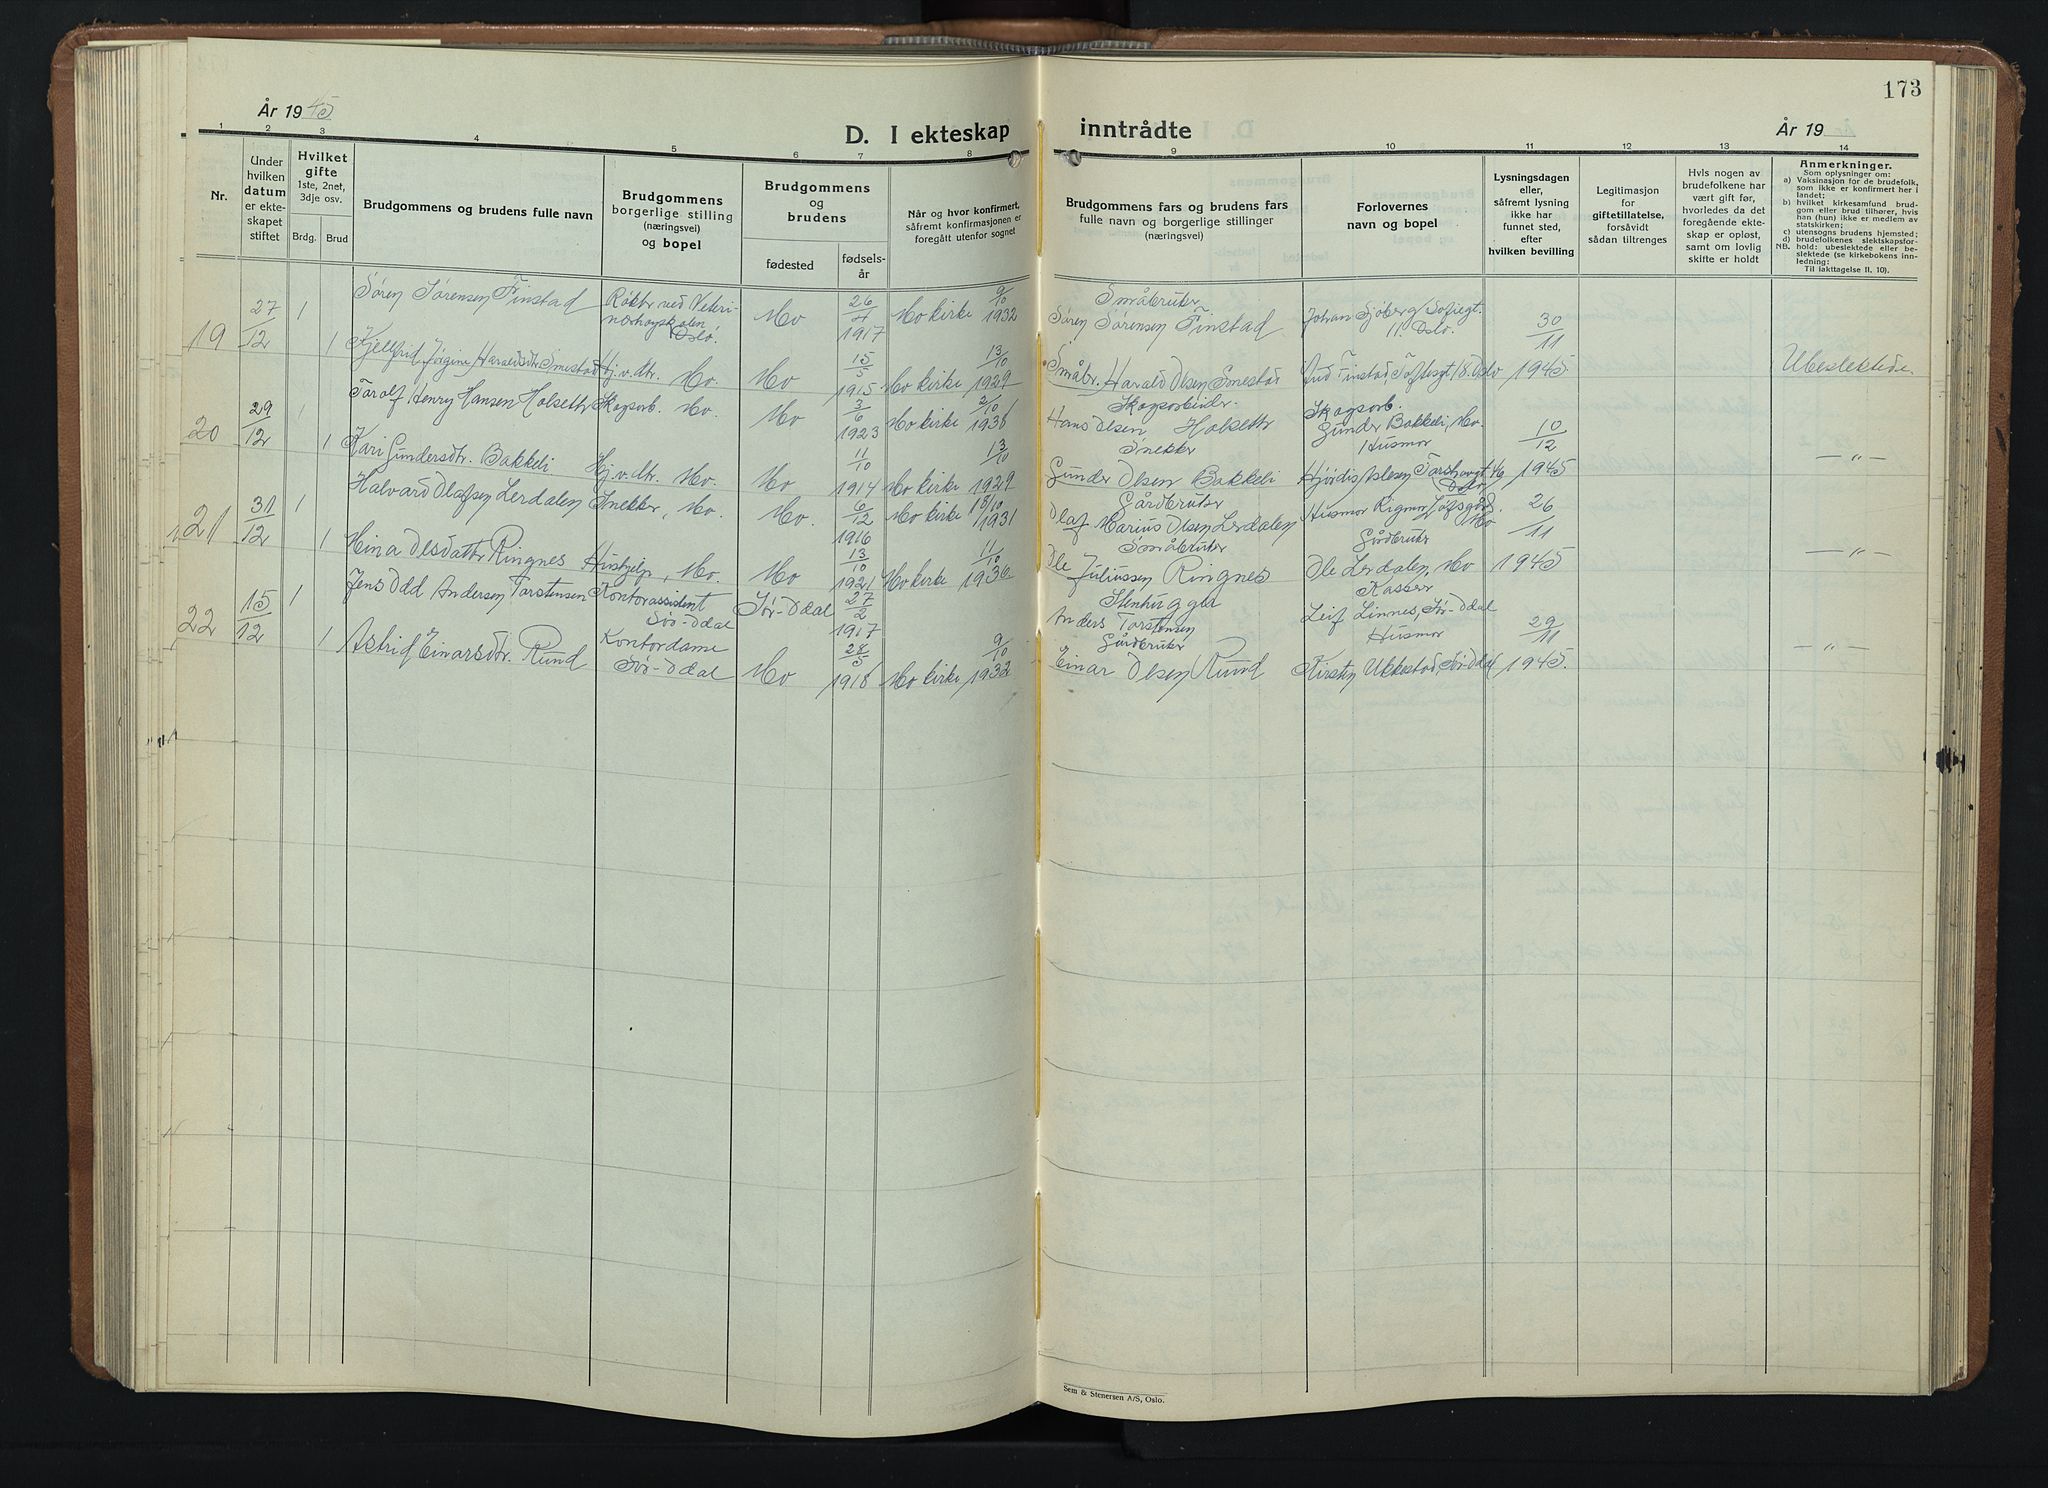 173
År 1945
D. I ekteskap inntrådte
År 19
1 2 3 4 5 6 7 8 9 10 11 12 13 14
Nr.
Under hvilken datum er ekteskapet stiftet
Hvilket gifte
1ste, 2net, 3dje osv.
Brdg. Brud
Brudgommens og brudens fulle navn
Brudgommens borgerlige stilling (næringsvei) og bopel
Brudgommens og brudens
fødested
fødselsår
Når og hvor konfirmert, såfremt konfirmasjonen er foregått utenfor sognet
Brudgommens fars og brudens fars fulle navn og borgerlige stillinger (næringsvei)
Forlovernes navn og bopel
Lysningsdagen eller, såfremt lysning ikke har funnet sted, efter hvilken bevilling
Legitimasjon for giftetillatelse, forsåvidt sådan tiltrenges
Hvis nogen av brudefolkene har vært gift før, hvorledes da det foregående ekteskap er opløst, samt om lovlig skifte er holdt
Anmerkninger.
Som oplysninger om:
a) Vaksinasjon for de brudefolk, som ikke er konfirmert her i landet;
b) hvilket kirkesamfund brudgom eller brud tilhører, hvis han (hun) ikke er medlem av statskirken;
c) utensogns brudens hjemsted;
d) brudefolkenes slektskapsforhold: ubeslektede eller beslektede (se kirkebokens innledning:
NB.
Til iakttagelse II, 10).
19 27/12 1 Søren Sørensen Finstad Røkter ved Veterinærhøgskolen Oslo Mo 26/4 1917 Mo kirke 9/10 1932 Småbruker Søren Sørensen Finstad Johan Sjøberg Sofiegt. 11. Oslo. 30/11
1 Kjellfrid Jørgine Haraldsdtr Smestad Hj.v.dtr. Mo. Mo 15/5 1915 Mo kirke 13/10 1929 Småbr. Harald Olsen Smestad Finstad Toftesgt 18. Oslo 1945. Ubeslektede.
20 29/12 1 Torolf Henry Hansen Holseth Skogsarb. Mo. Mo 3/6 1923 Mo kirke 2/10 1938 Skogsarbeider Hans Olsen Holseth Skogsarb. Gunder Bakkeli, Mo. 10/12
1 Kari Gundersdtr. Bakkeli Hj.v.dtr. Mo. Mo 11/10 1914 Mo kirke 13/10 1929 Snekker Gunder Olsen Bakkeli Husmor Hjørdis Oslo 1945 — " —
21 31/12 1 Halvard Olafsen Lerdalen Snekker, Mo. Mo. 6/12 1916 Mo kirke 18/10 1931 Gårdbruker Olaf Marius Olsen Lerdalen Husmor Rigmor Mo 26/11
1 Mina Olsdatter Ringnes Hushjelp, Mo. Mo 13/10 1921 Mo kirke 11/10 1936 Småbruker Ole Juliussen Ringnes Gårdbruker Ole Lerdalen, Mo 1945 — " —
22 15/12 1 Jens Odd Andersen Torstensen Kontorassistent Sør-Odal Sør-Odal 27/2 1917 Stenhugger Anders Torstensen Kasser Leif Linnes, Sør-Odal 29/11
1 Astrid Einarsdtr. Rund Kontordame Sør-Odal Mo 28/5 1918 Mo kirke 9/10 1932 Gårdbruker Einar Olsen Rund Husmor Kirsten Ukkestad, Sør-Odal 1945. — " —
Sem & Stenersen A/S, Oslo.